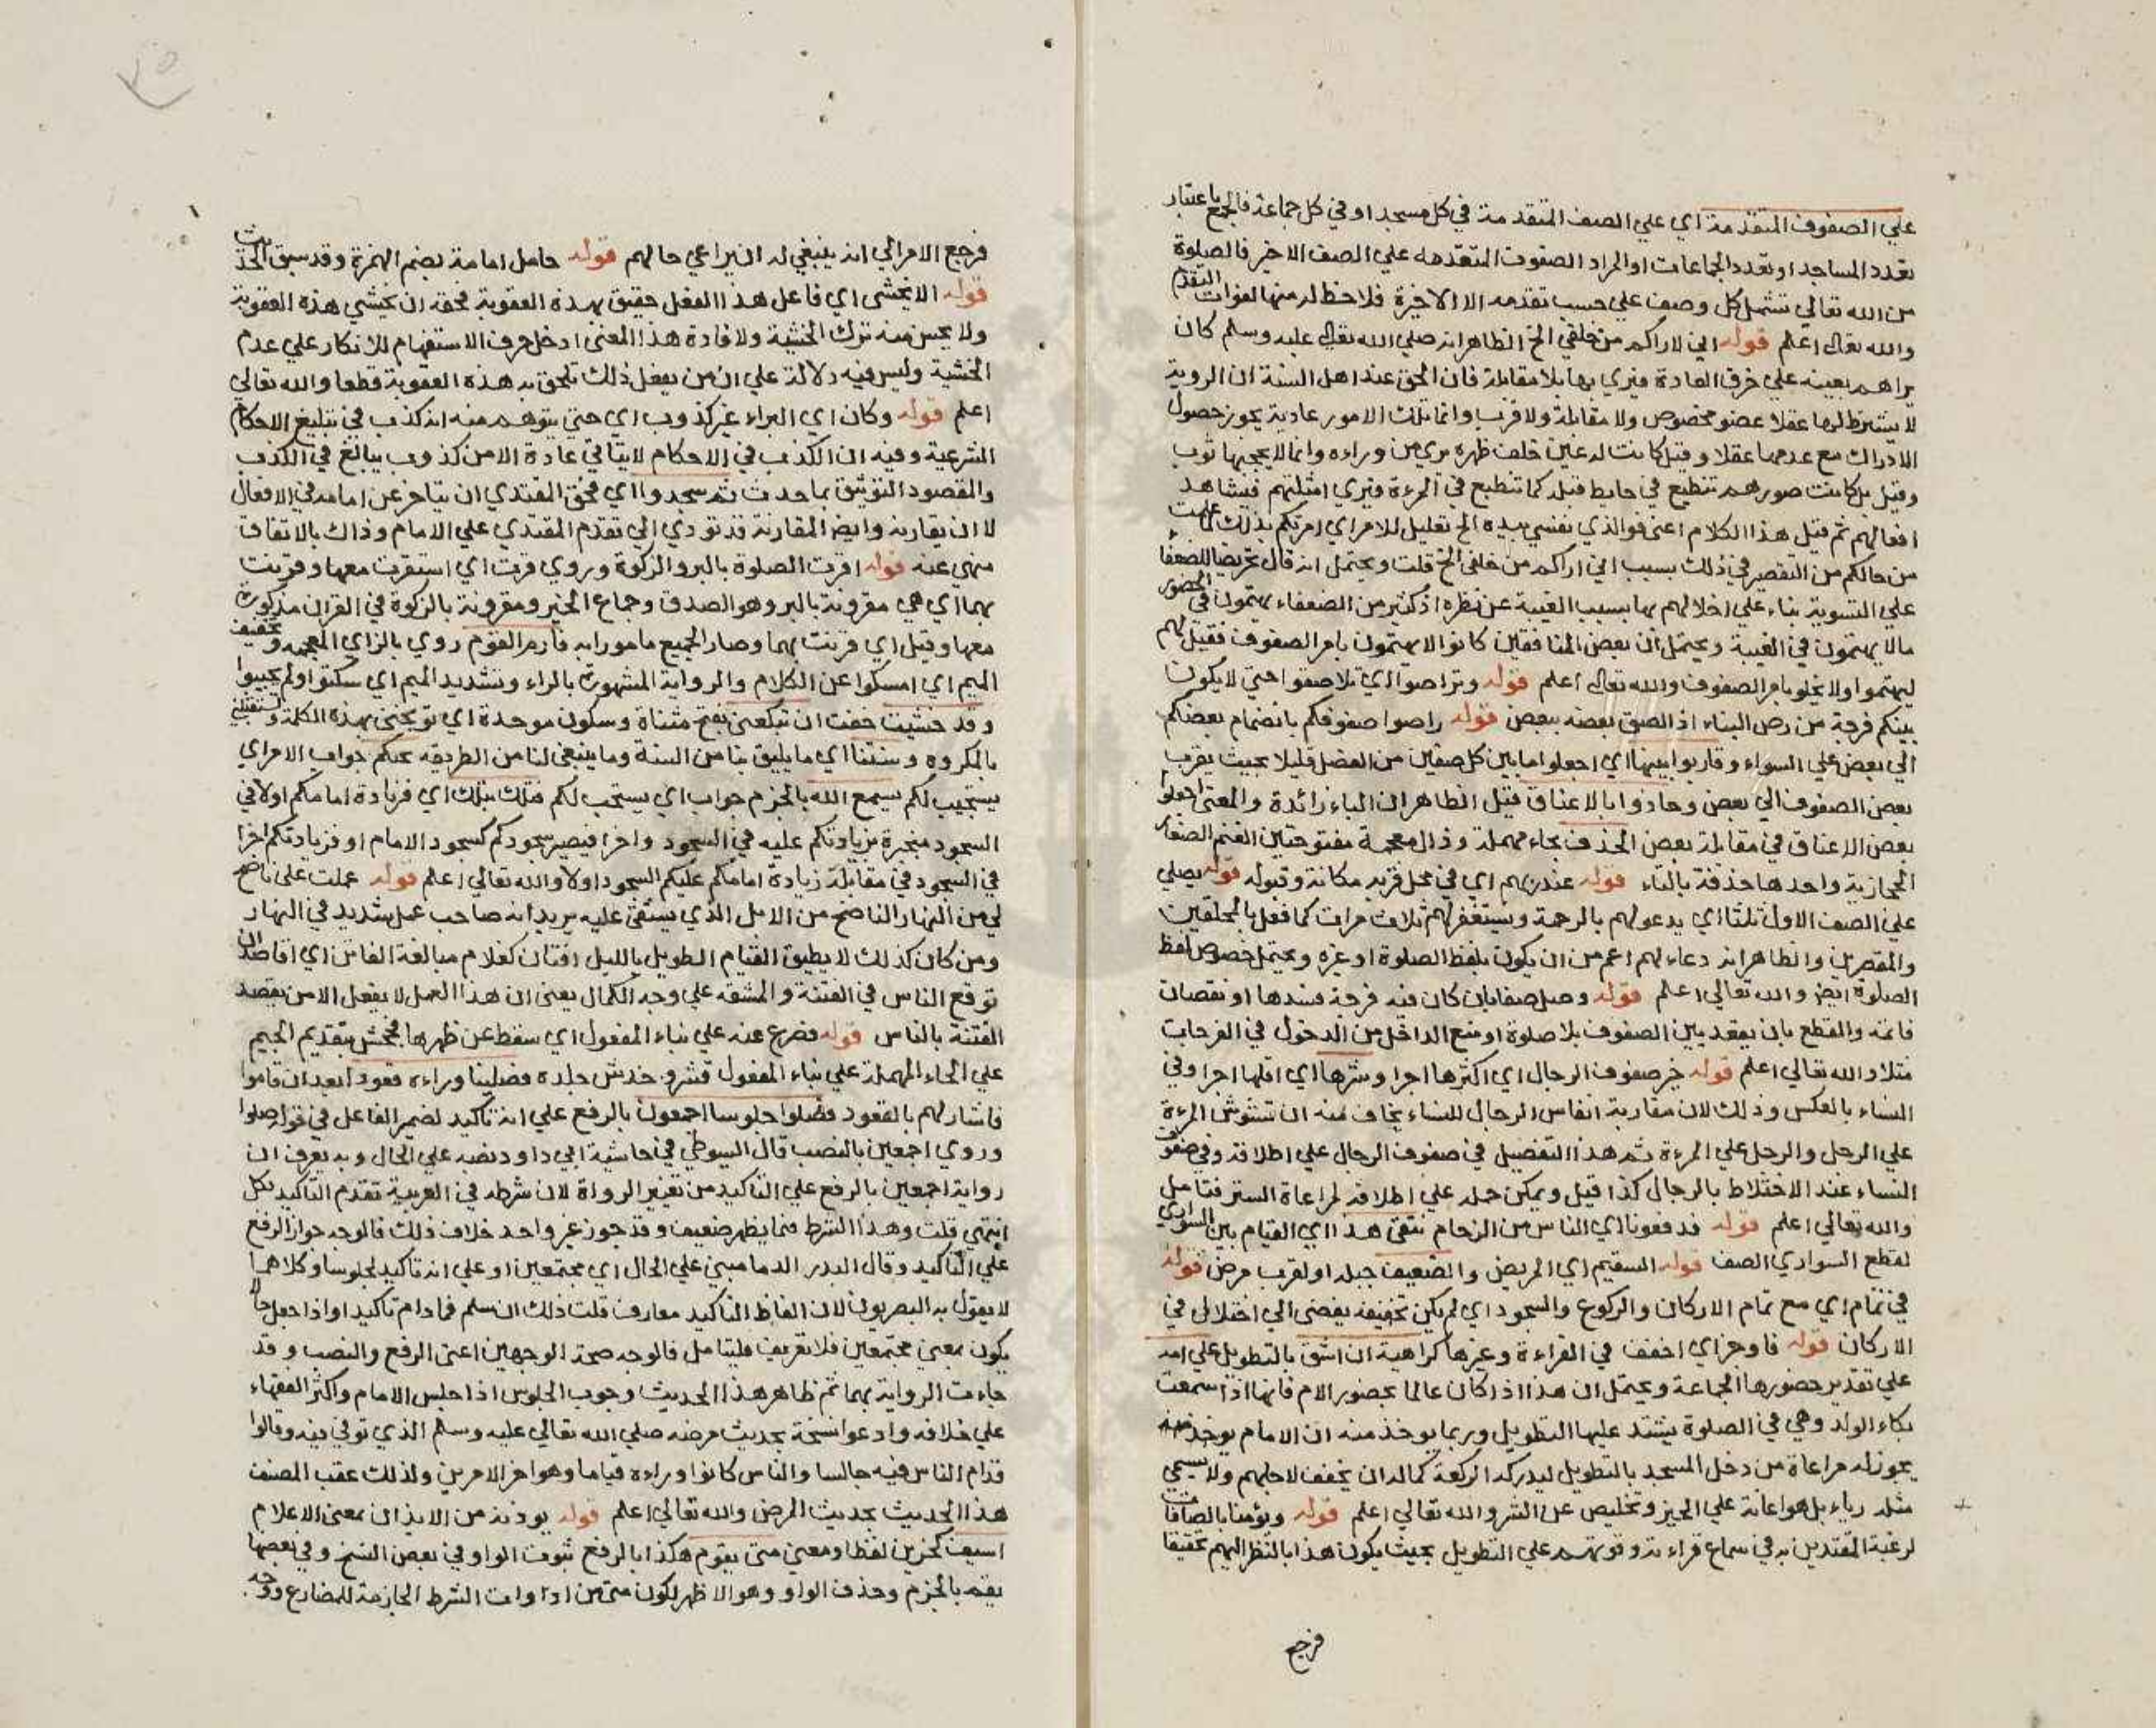 علي الصفوف المتقدمة اي علي الصف المتقدمة في كل مسجد او في كل جماعة فالجمع باعتبار
تعدد المساجد او تعدد الجماعات او المراد الصفوف المتقدمه علي الصف الاخير فالصلوة
من الله تعالي تشمل كل وصف علي حسب تقدمه الا الاخيرة فلا حظ له منها لفوات التقدم
والله تعالى اعلم قوله اني لاراكم من خلفي الخ الظاهر انه صلي الله تعالى عليه وسلم كان
يراهم بعينه علي خرق العادة فيري بها بلا مقابلة فان الحق عند اهل السنة ان الروية
لا يشترط لها عقلا عضو مخصوص ولا مقابلة ولا قرب وانما تلك الامور عادية يجوز حصول
الادراك مع عدمها عقلا وقيل كانت له عين خلف ظهره يري من وراءه وانما لا يحجبها ثوب
وقيل بل كانت صورهم تنطبع في حايط قبله كما تنطبع في المرءة فيري امثلتهم فيشاهد
افعالهم ثم قيل هذا الكلام اعني فوالذي نفسي بيده الخ تعليل للامر اي امرتكم بذلك لما علمت
من حالكم من التقصير في ذلك بسبب اني اراكم من خلفي الخ قلت ويحتمل انه قال تحريضا للضعفا
علي التسوية بناء علي اخلالهم بها بسبب الغيبة عن نظره اذ كثير من الضعفاء يهتمون في الحضور
مالا يهتمون في الغيبة ويحتمل ان بعض المنافقين كانوا لا يهتمون بامر الصفوف فقيل لهم
ليهتموا ولا يخلو بامر الصفوف والله تعالى اعلم قوله وتراصوا اي تلاصقوا حتي لا يكون
بينكم فرجة من رص البناء اذ الصق بعضه ببعض قوله راصوا صفوفكم بانضمام بعضكم
الي بعض علي السواء وقاربوا بينها اي اجعلوا ما بين كل صفين من الفصل قليلا بحيث يقرب
بعض الصفوف الي بعض وحاذوا بالاعناق قيل الظاهر ان الباء زائدة والمعنى اجعلوا
بعض الاعناق في مقابلة بعض الحذف بحاء مهملة وذال معجمة مفتوحتين الغنم الصغار
الحجازية واحدها حذفة بالتاء قوله عند ربهم اي في محل قربه مكانة وقبوله قوله يصلي
علي الصف الاول ثلثا اي يدعو لهم بالرحمة ويستغفر لهم ثلاث مرات كما فعل بالمحلقين
والمقصرين والظاهر انه دعاء لهم اعم من ان يكون بلفظ الصلوة او غيره ويحتمل خصوص لفظ
الصلوة ايض والله تعالي اعلم قوله وصل صفا بان كان فيه فرجة فسدها او نقصان
فاتمه والقطع بان يقعد بين الصفوف بلا صلوة او منع الداخل من الدخول في الفرجات
مثلا والله تعالي اعلم قوله خير صفوف الرجال اي اكثرها اجرا وشرها اي اقلها اجرا وفي
النساء بالعكس وذلك لان مقاربة انفاس الرجال للنساء يخاف منه ان تشوش المرءة
علي الرجل والرجل علي المرءة ثم هذا التفضيل في صفوف الرجال علي اطلاقه وفي صفوف
النساء عند الاختلاط بالرجال كذا قيل ويمكن حمله علي اطلاقه لمراعاة الستر فتامل
والله تعالي اعلم قوله فدفعونا اي الناس من الزحام نتقي هذا اي القيام بين السواري
لقطع السواري الصف قوله السقيم اي المريض والضعيف جبلة او لقرب مرض قوله
في تمام اي مع تمام الاركان والركوع والسجود اي لم يكن تخفيفه يفضي الي اختلال في
الاركان قوله فاوجز اي اخفف في القراءة وغيرها كراهية ان اشق بالتطويل علي امه
علي تقدير حضورها الجماعة ويحتمل ان هذا اذا كان عالما بحضور الام فانها اذا سمعت
بكاء الولد وهي في الصلوة يشتد عليها التطويل وربما يوخذ منه ان الامام يوخذ منه
يجوز له مراعاة من دخل المسجد بالتطويل ليدرك الركعة كما له ان يخفف لاجلهم ولا يسمي
مثله رياء بل هو اعانة علي الخير وتخليص عن الشر والله تعالي اعلم قوله ويؤمنا بالصافات
لرغبة المقتدين به في سماع قراءته وقوتهم علي التطويل بحيث يكون هذا بالنظر اليهم تخفيفا
فرجع
فرجع الامر الي انه ينبغي له ان يراعي حالهم قوله حامل امامة بضم الهمزة وقد سبق الحديث
قوله الا يخشى اي فاعل هذا الفعل حقيق بهذه العقوبة فحقه ان يخشي هذه العقوبة
ولا يحسن منه ترك الخشية ولافادة هذا المعنى ادخل حرف الاستفهام للانكار علي عدم
الخشية وليس فيه دلالة علي ان من يفعل ذلك تلحق به هذه العقوبة قطعا والله تعالي
اعلم قوله وكان اي البراء غير كذوب اي حتي يتوهم منه انه كذب في تبليغ الاحكام
الشرعية وفيه ان الكذب في الاحكام لا يتاتي عادة الا من كذوب يبالغ في الكذب
والمقصود التوثيق بما حدث ثم سجدوا اي فحق المقتدي ان يتاخر عن امامه في الافعال
لا ان يقارنه وايض المقارنة قد تودي الي تقدم المقتدي علي الامام وذاك بالاتفاق
منهي عنه قوله اقرت الصلوة بالبر والزكوة وروي قرت اي استقرت معها وقرنت
بهما اي هي مقرونة بالبر وهو الصدق وجماع الخير ومقرونة بالزكوة في القران مذكورة
معها وقيل اي قرنت بهما وصار الجميع مامورا به فارم القوم روي بالزاي المعجمه وتخفيف
الميم اي امسكوا عن الكلام والرواية المشهورة بالراء وتشديد الميم اي سكتوا ولم يجيبوا
وقد خشيت خفت ان تبكعني بفتح مثناة وسكون موحدة اي توبخني بهذه الكلمة وتستقبلني
بالمكروه وسنتنا اي ما يليق بنا من السنة وما ينبغي لنا من الطريقه يحبكم جواب الامر اي
يستجيب لكم يسمع الله بالجزم جواب اي يستجب لكم فتلك بتلك اي فزيادة امامكم اولا في
السجود منجبرة بزيادتكم عليه في السجود واخرا فيصير سجودكم كسجود الامام او فزيادتكم اخرا
في السجود في مقابلة زيادة امامكم عليكم السجود اولا والله تعالي اعلم قوله عملت علي ناضح
لي من النهار الناضح من الابل الذي يستقي عليه يريد انه صاحب عمل شديد في النهار
ومن كان كذلك لا يطيق القيام الطويل بالليل افتان كعلام مبالغة الفاتن اي اقاصد ان
توقع الناس في الفتنة والمشقه علي وجه الكمال يعني ان هذا العمل لا يفعل الا من يقصد
الفتنة بالناس قوله فصرع عنه علي بناء المفعول اي سقط عن ظهرها فجحش بتقديم الجيم
علي الحاء المهملة علي بناء المفعول قشر وخدش جلده فصلينا وراءه قعودا بعد ان قاموا
فاشار لهم بالقعود فصلوا جلوسا اجمعون بالرفع علي انه تاكيد لضمير الفاعل في قوله صلوا
وروي اجمعين بالنصب قال السيوطي في حاشية ابي داود نصبه علي الحال وبه يعرف ان
رواية اجمعين بالرفع علي التاكيد من تغيير الرواة لان شرطه في العربية تقدم التاكيد بكل
انتهي قلت وهذا الشرط فيما يظهر ضعيف وقد جوز غير واحد خلاف ذلك فالوجه جواز الرفع
علي التاكيد وقال البدر الدماميني علي الحال اي مجتمعين او علي انه تاكيد لجلوسا وكلاهما
لا يقول به البصريون لان الفاظ التاكيد معارف قلت ذلك ان سلم فما دام تاكيد او اذا جعل حالا
يكون بمعني مجتمعين فلا تعريف فليتامل فالوجه صحة الوجهين اعني الرفع والنصب وقد
جاءت الرواية بهما ثم ظاهر هذا الحديث وجوب الجلوس اذا جلس الامام واكثر الفقهاء
علي خلافه وادعوا نسخه بحديث مرضه صلي الله تعالي عليه وسلم الذي توفي فيه وقالوا
قد ام الناس فيه جالسا والناس كانوا وراءه قياما وهو اخر الامرين ولذلك عقب المصنف
هذا الحديث بحديث المرض والله تعالي اعلم قوله يوذنه من الايذان بمعنى الاعلام
اسيف كحزين لفظا ومعني متي يقوم هكذا بالرفع ثبوت الواو في بعض النسخ وفي بعضها
يقم بالجزم وحذف الواو وهو الاظهر لكون متى من ادوات الشرط الجازمة للمضارع ووجه